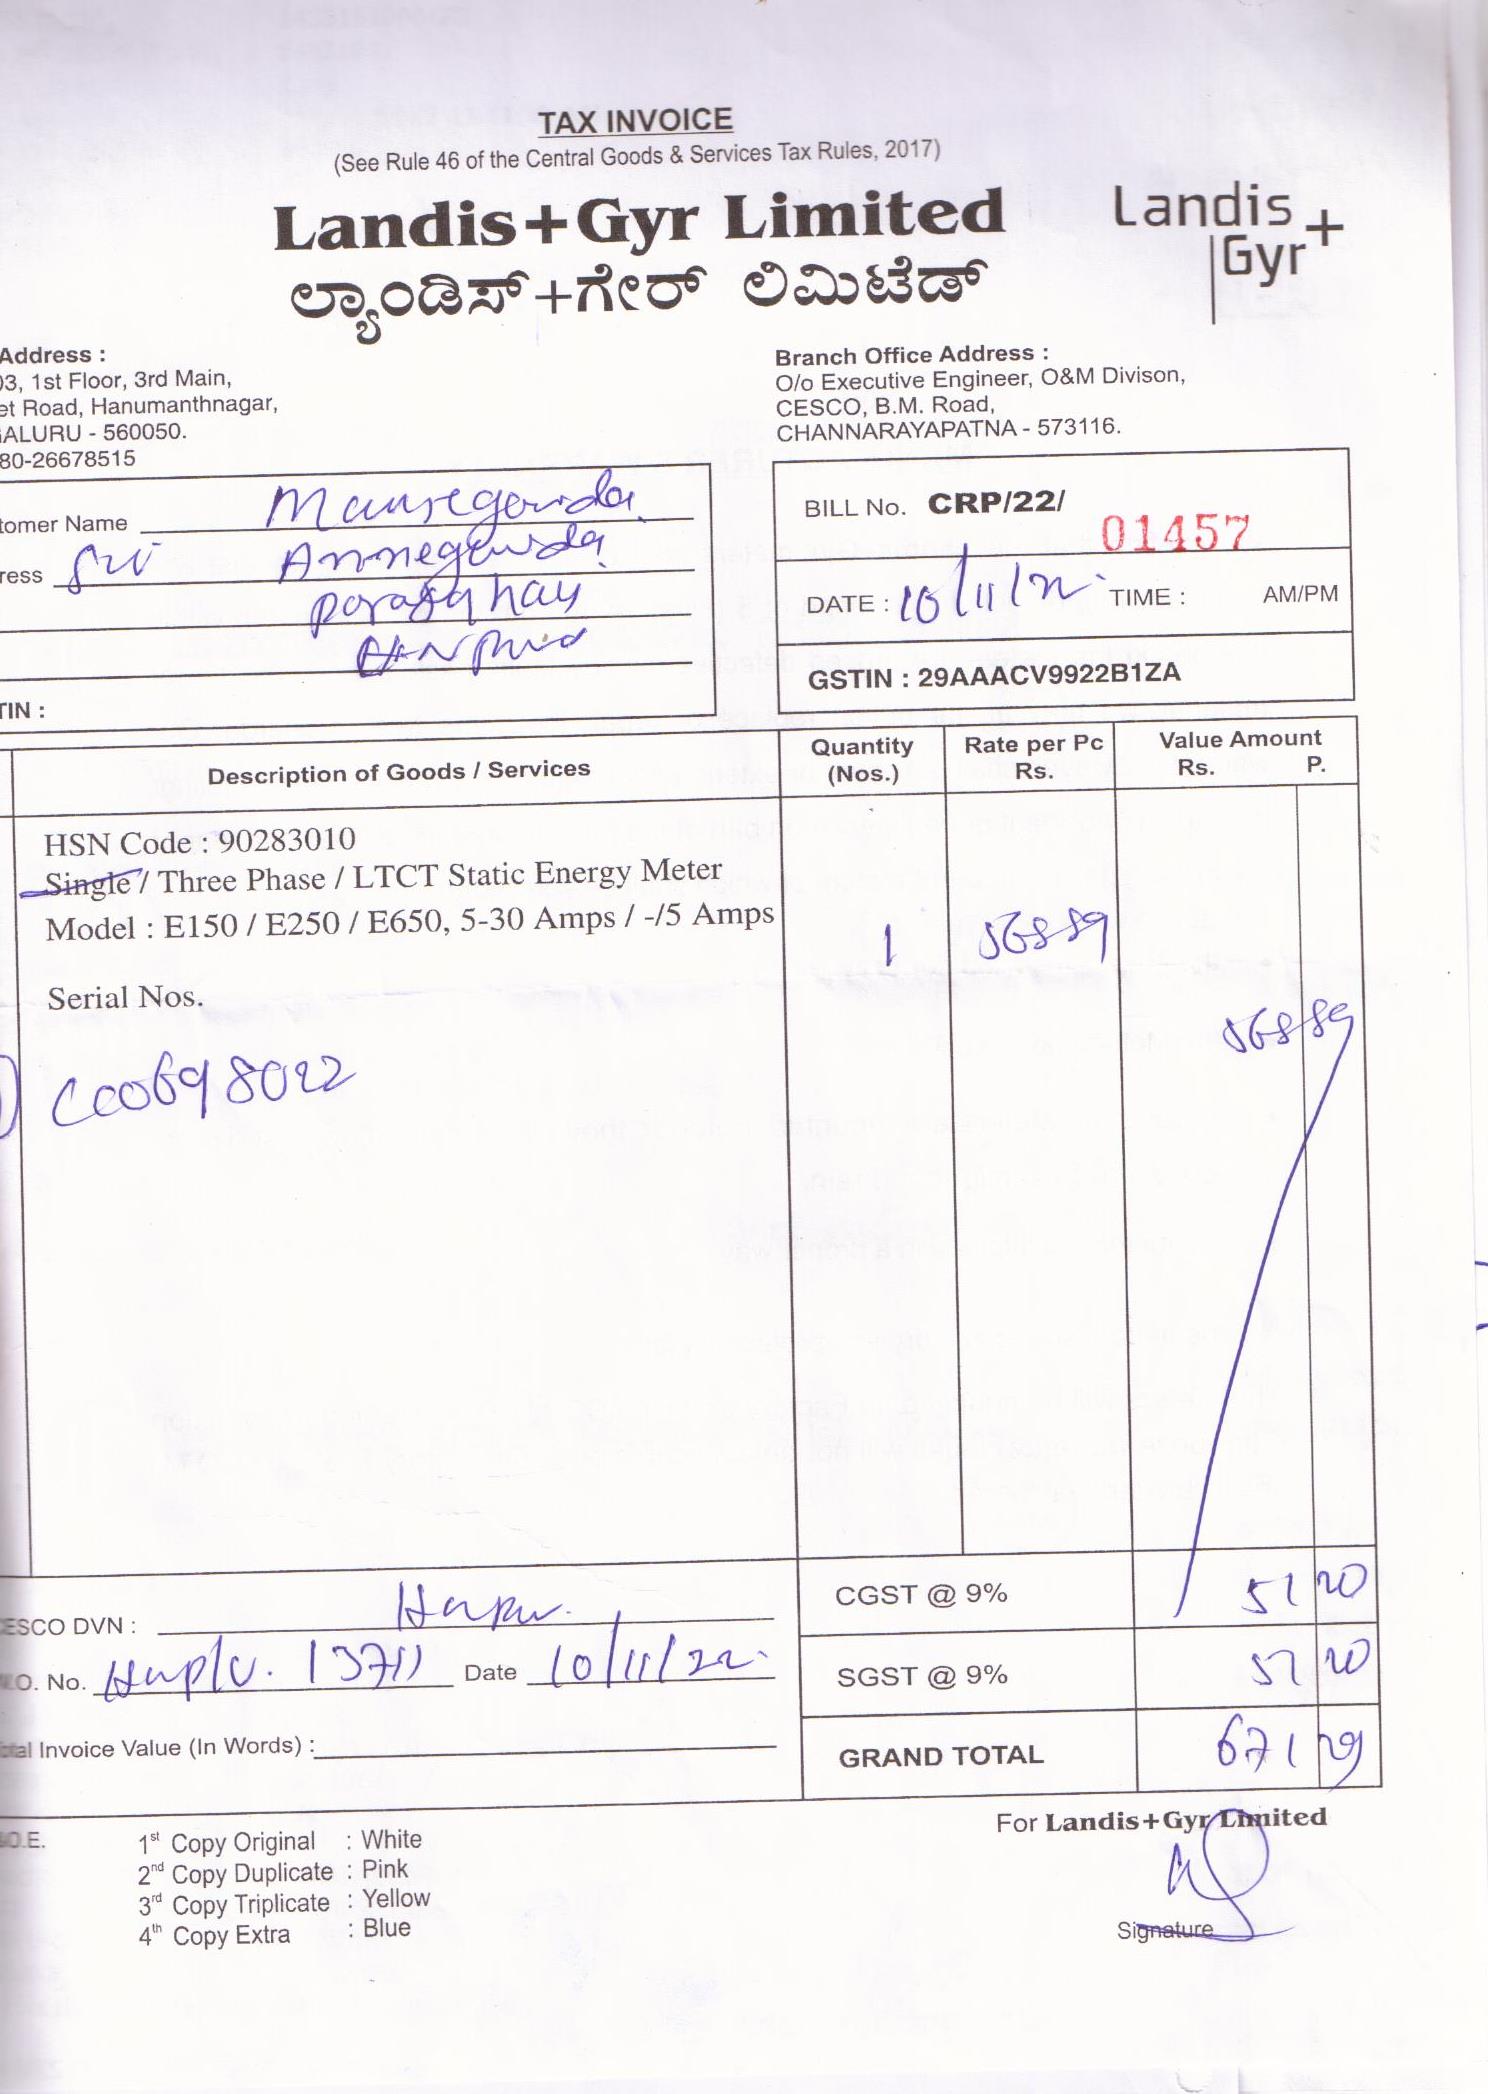 TAX INVOICE
(See Rule 46 of the Central Goods & Services Tax Rules, 2017)
Landis+Gyr Limited
ಲ್ಯಾಂಡಿಸ್+ಗೇರ್ ಲಿಮಿಟೆಡ್
Landis
Gyr+
Address :
03, 1st Floor, 3rd Main,
et Road, Hanumanthnagar,
ALURU - 560050.
80-26678515
Branch Office Address :
O/o Executive Engineer, O&M Divison,
CESCO, B.M. Road,
CHANNARAYAPATNA - 573116.
tomer Name
ress
TIN :
BILL No. CRP/22/ 01457
DATE : 10/11/22 TIME : AM/PM
GSTIN : 29AAACV9922B1ZA
Description of Goods / Services
Quantity (Nos.)
Rate per Pc Rs.
Value Amount Rs. P.
HSN Code : 90283010
Single / Three Phase / LTCT Static Energy Meter
Model : E150 / E250 / E650, 5-30 Amps / -/5 Amps
1 568 89
Serial Nos.
568 89
CESCO DVN :
O. No. 13711 Date 10/11/22
Total Invoice Value (In Words) :
CGST @ 9% 51 20
SGST @ 9% 51 20
GRAND TOTAL 671 29
O.E.
1st Copy Original : White
2nd Copy Duplicate : Pink
3rd Copy Triplicate : Yellow
4th Copy Extra : Blue
For Landis+Gyr Limited
Signature